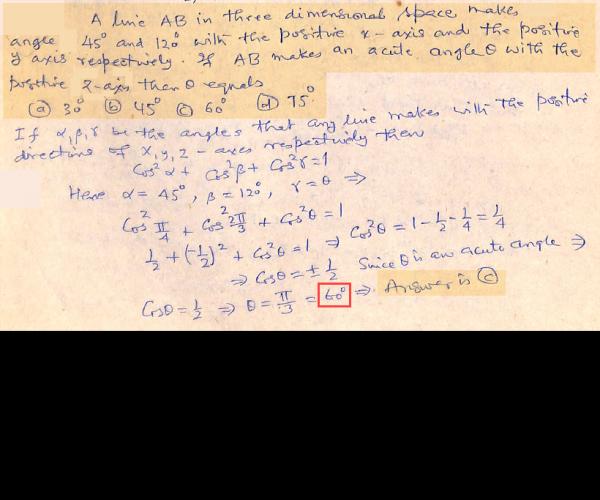 A line AB in three dimensional space makes
angle 45° and 120° with the positive x-axis and the positive
y axis respectively. If AB makes an acute angle θ with the
positive z-axis then θ equals
(a) 30° (b) 45° (c) 60° (d) 75°
If α, β, γ be the angles that any line makes with the positive
directions of x, y, z - axes respectively then
Cos²α + Cos²β + Cos²γ = 1
Here α = 45°, β = 120°, γ = θ ⇒
Cos² π/4 + Cos² 2π/3 + Cos²θ = 1
1/2 + (-1/2)² + Cos²θ = 1 ⇒ Cos²θ = 1 - 1/2 - 1/4 = 1/4
⇒ Cosθ = ± 1/2 Since θ is an acute angle ⇒
Cosθ = 1/2 ⇒ θ = π/3 = 60° ⇒ Answer is (c)